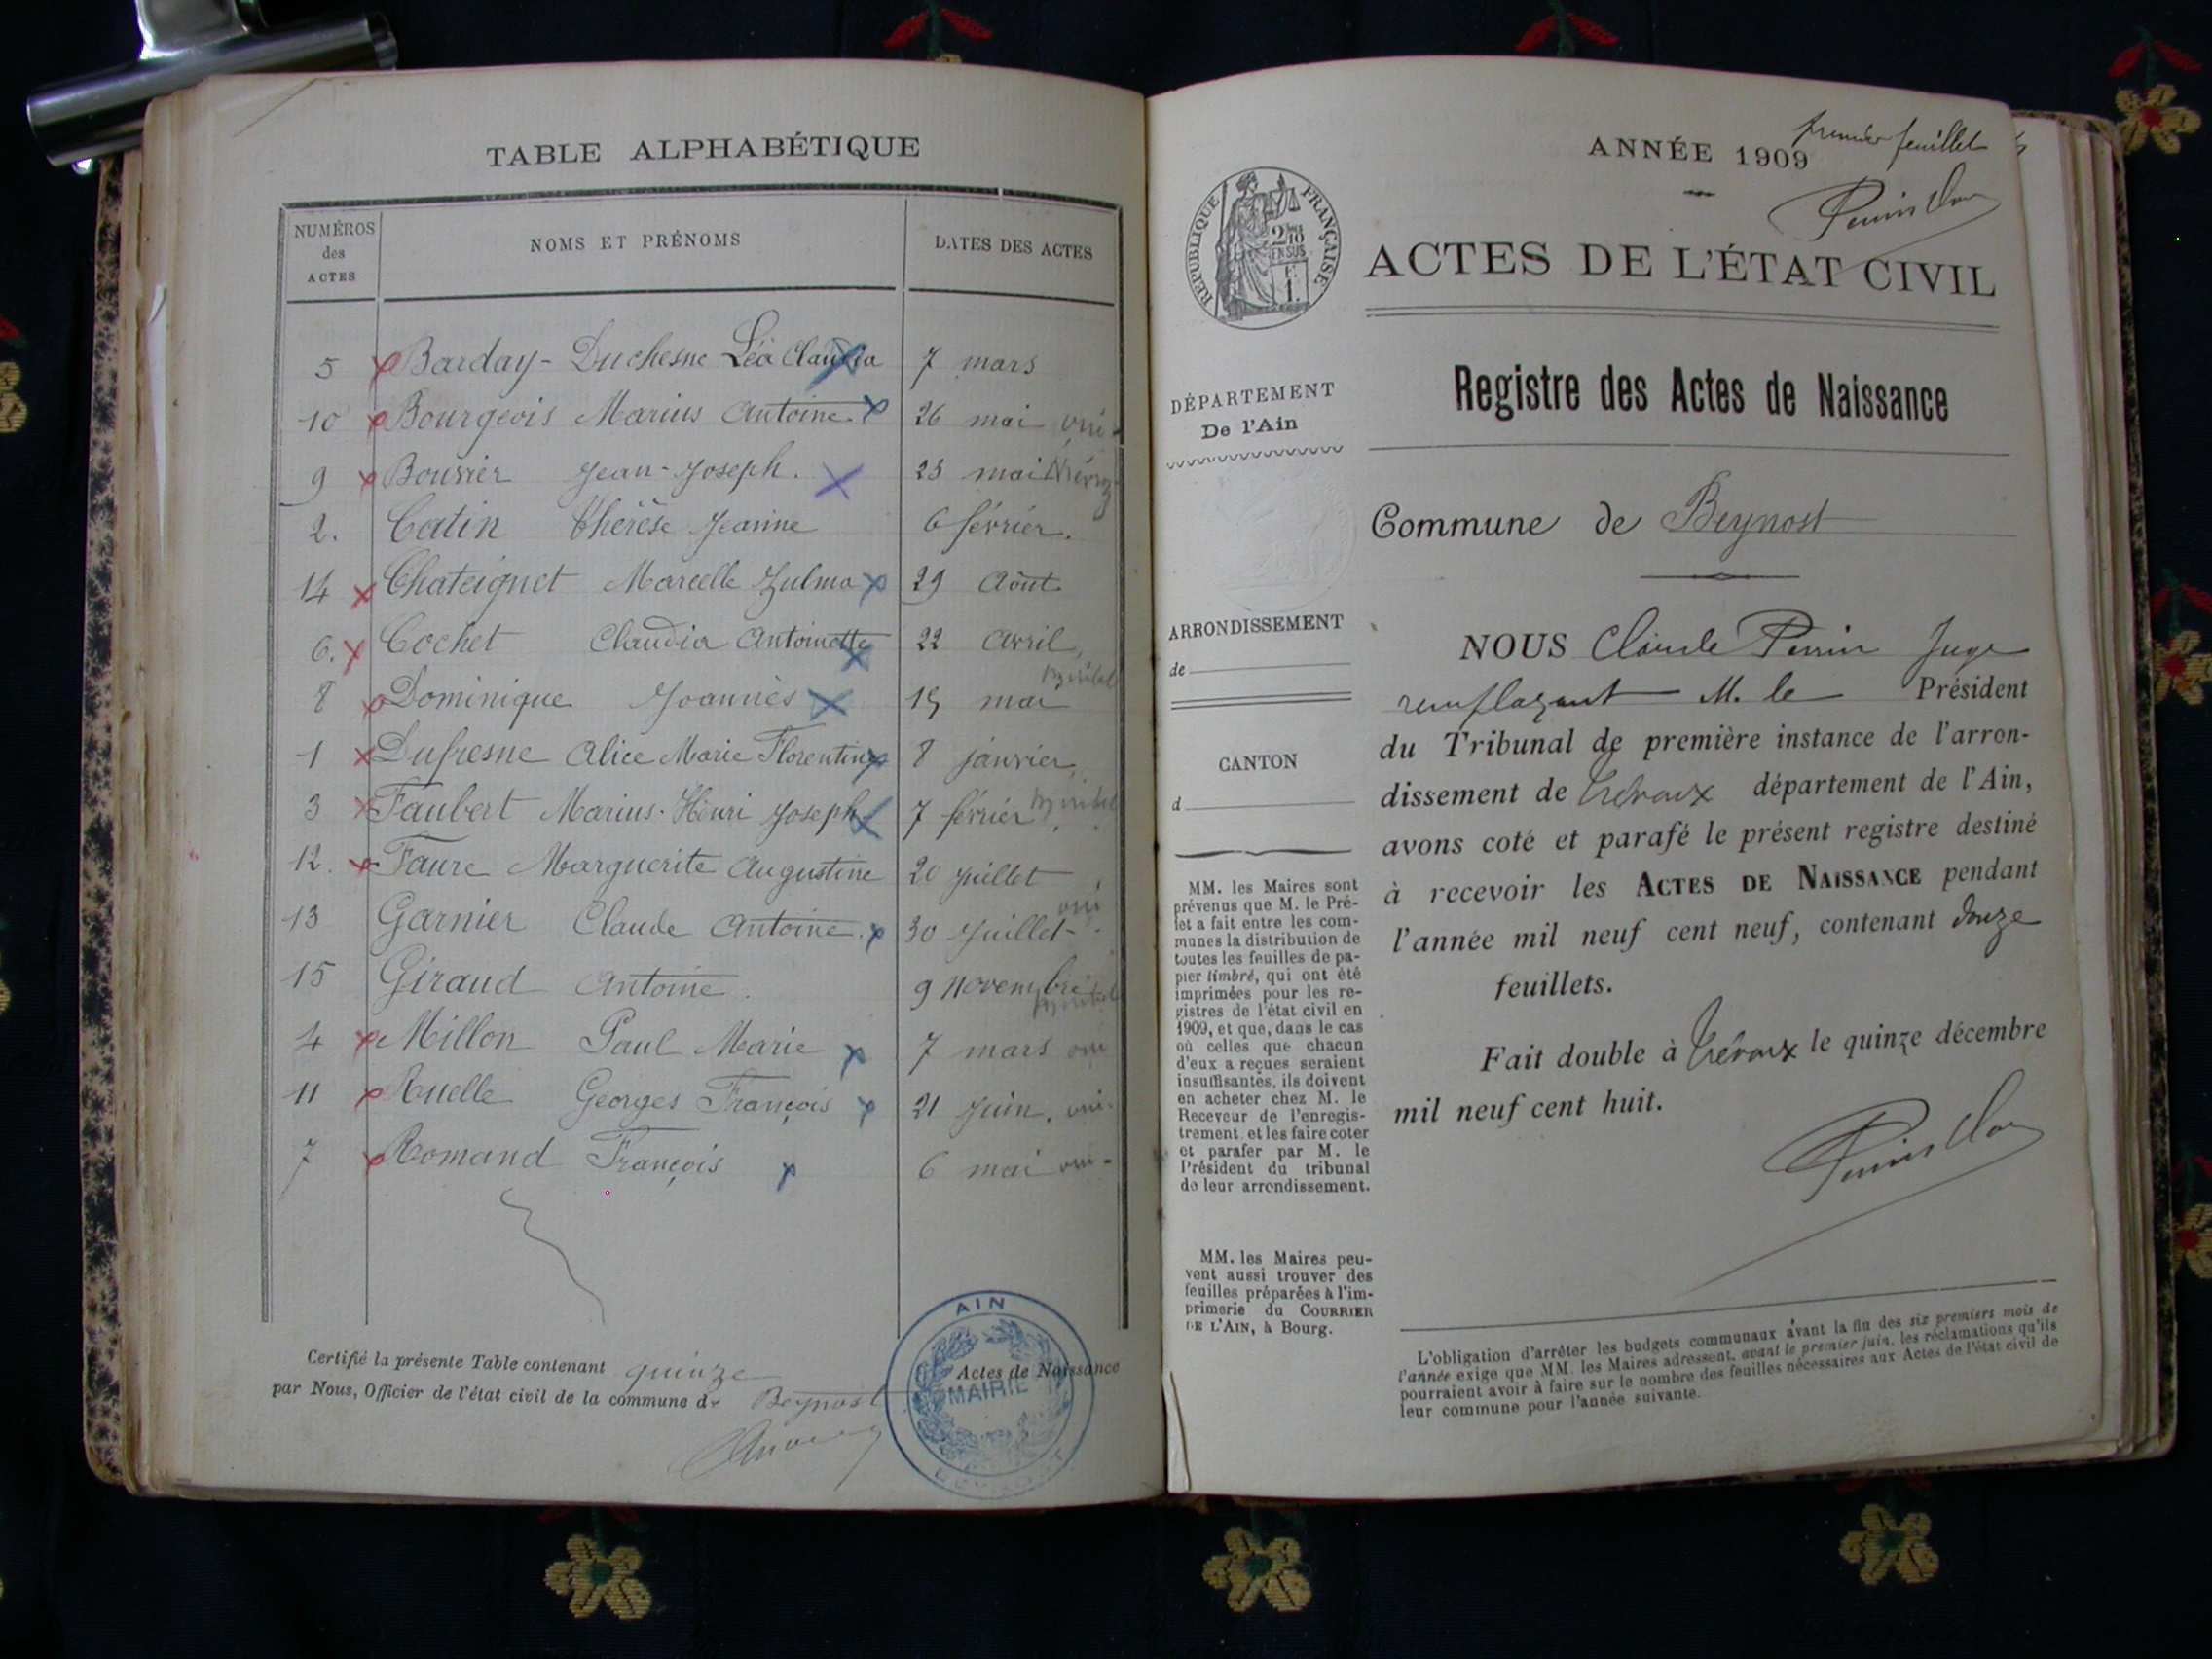 TABLE ALPHABÉTIQUE
NUMÉROS des ACTES
NOMS ET PRÉNOMS
DATES DES ACTES
5 Barday-Duchesne Léa Claudia 7 mars
10 Bourgeois Marius Antoine. 26 mai oui
9 Bouvier Jean-Joseph. 23 mai
2. Catin Thérèse Jeanne 6 février.
14 Chateignet Marcelle Zulma 29 Août
6. Cochet Claudia Antoinette 22 Avril,
8 Dominique Joannès 15 mai
1 Dufresne Alice Marie Florentine 8 janvier,
3 Faubert Marius-Henri Joseph 7 février
12. Faure Marguerite Augustine 20 Juillet
13 Garnier Claude Antoine. 30 Juillet- oui
15 Giraud Antoine. 9 Novembre
4 Millon Paul Marie 7 mars oui
11 Ruelle Georges François 21 Juin. oui-
7 Romand François 6 mai oui-
Certifié la présente Table contenant quinze Actes de Naissance
par Nous, Officier de l'état civil de la commune de Beynost
AIN
MAIRIE
premier feuillet
ANNÉE 1909
RÉPUBLIQUE FRANÇAISE
2/10
EN SUS
ACTES DE L'ÉTAT CIVIL
Registre des Actes de Naissance
DÉPARTEMENT
De l'Ain
Commune de Beynost
ARRONDISSEMENT
de
CANTON
d
NOUS Claude Perrin Juge
remplaçant M. le Président
du Tribunal de première instance de l'arron-
dissement de Trévoux département de l'Ain,
avons coté et parafé le présent registre destiné
à recevoir les ACTES DE NAISSANCE pendant
l'année mil neuf cent neuf, contenant douze
feuillets.
Fait double à Trévoux le quinze décembre
mil neuf cent huit.
MM. les Maires sont
prévenus que M. le Pré-
fet a fait entre les com-
munes la distribution de
toutes les feuilles de pa-
pier timbré, qui ont été
imprimées pour les re-
gistres de l'état civil en
1909, et que, dans le cas
où celles que chacun
d'eux a reçues seraient
insuffisantes, ils doivent
en acheter chez M. le
Receveur de l'enregis-
trement, et les faire coter
et parafer par M. le
Président du tribunal
de leur arrondissement.
MM. les Maires peu-
vent aussi trouver des
feuilles préparées à l'im-
primerie du COURRIER
DE L'AIN, à Bourg.
L'obligation d'arrêter les budgets communaux avant la fin des six premiers mois de
l'année exige que MM. les Maires adressent, avant le premier juin, les réclamations qu'ils
pourraient avoir à faire sur le nombre des feuilles nécessaires aux Actes de l'état civil de
leur commune pour l'année suivante.